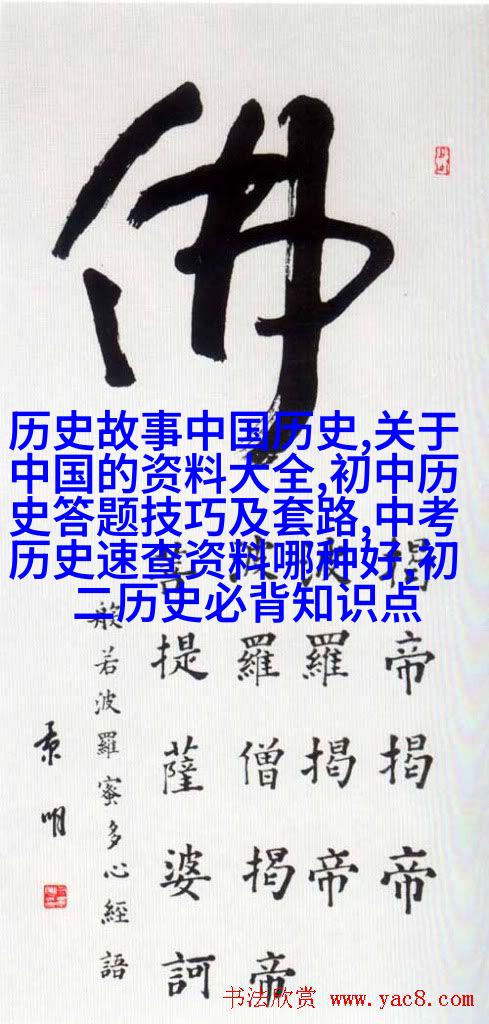 佛
历史故事中国历史,关于
中国的资料大全,初中历
史答题技巧及套路,中考
历史速查资料哪种好,初
二历史必背知识点
揭帝揭帝
波羅揭帝
波羅僧揭帝
菩提薩婆訶
般若波羅蜜多心經語
景明
书法欣赏 www.yac8.com